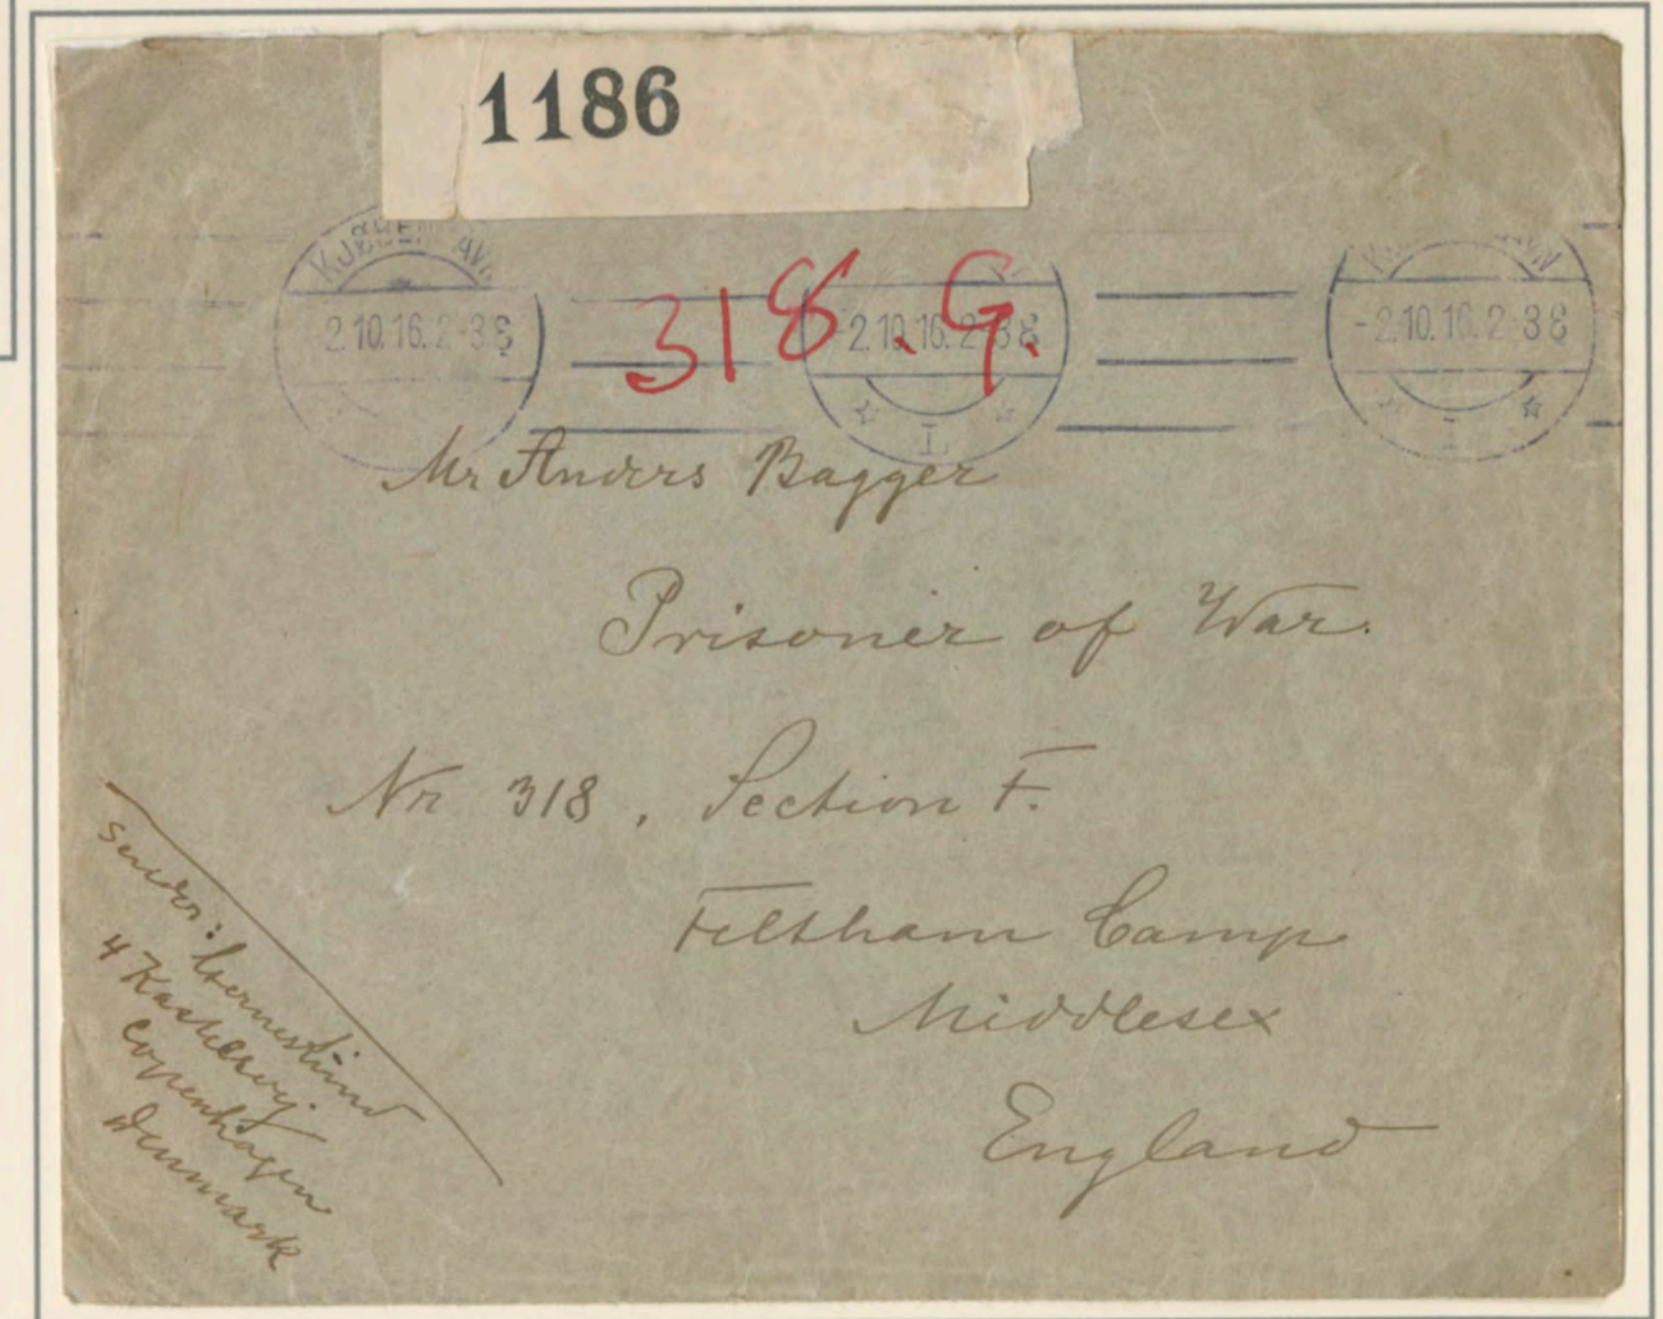 1186
KJØBENHAVN
2.10.16. 2-3 E
318. G.
2.10.16. 2-3 E
-2.10.16. 2-3 E
Mr Anders Bagger
Prisoner of War.
Nr 318, Section F.
Feltham Camp
Middlesex
England
Sender:
4
Copenhagen
Denmark